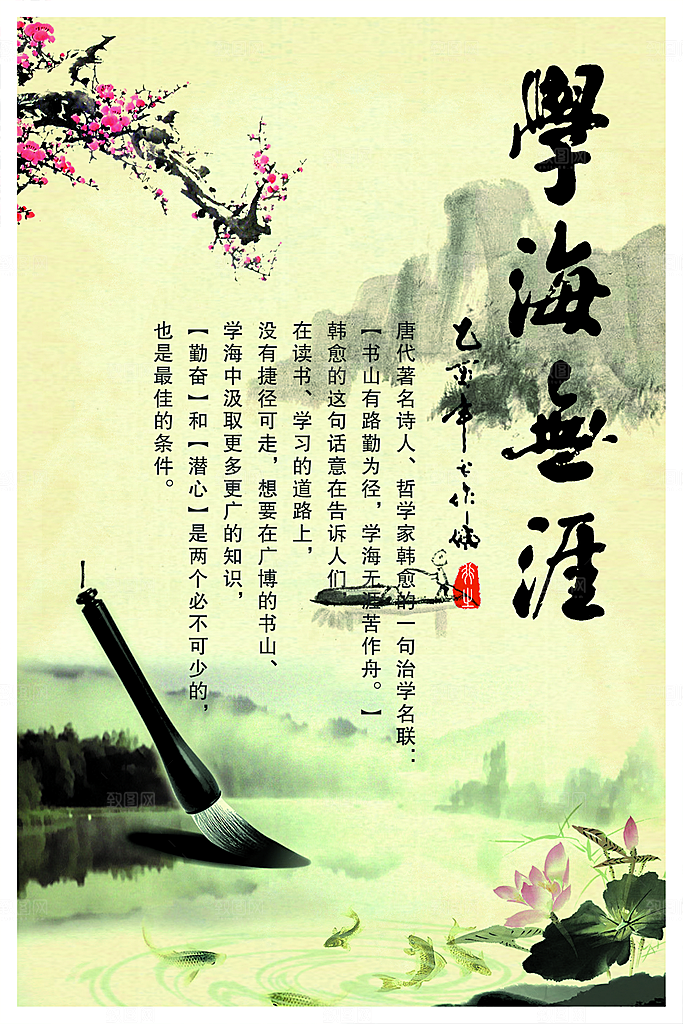 學海無涯
唐代著名诗人、哲学家韩愈的一句治学名联：
【书山有路勤为径，学海无涯苦作舟。】
韩愈的这句话意在告诉人们
在读书、学习的道路上，
没有捷径可走，想要在广博的书山、
学海中汲取更多更广的知识，
【勤奋】和【潜心】是两个必不可少的，
也是最佳的条件。